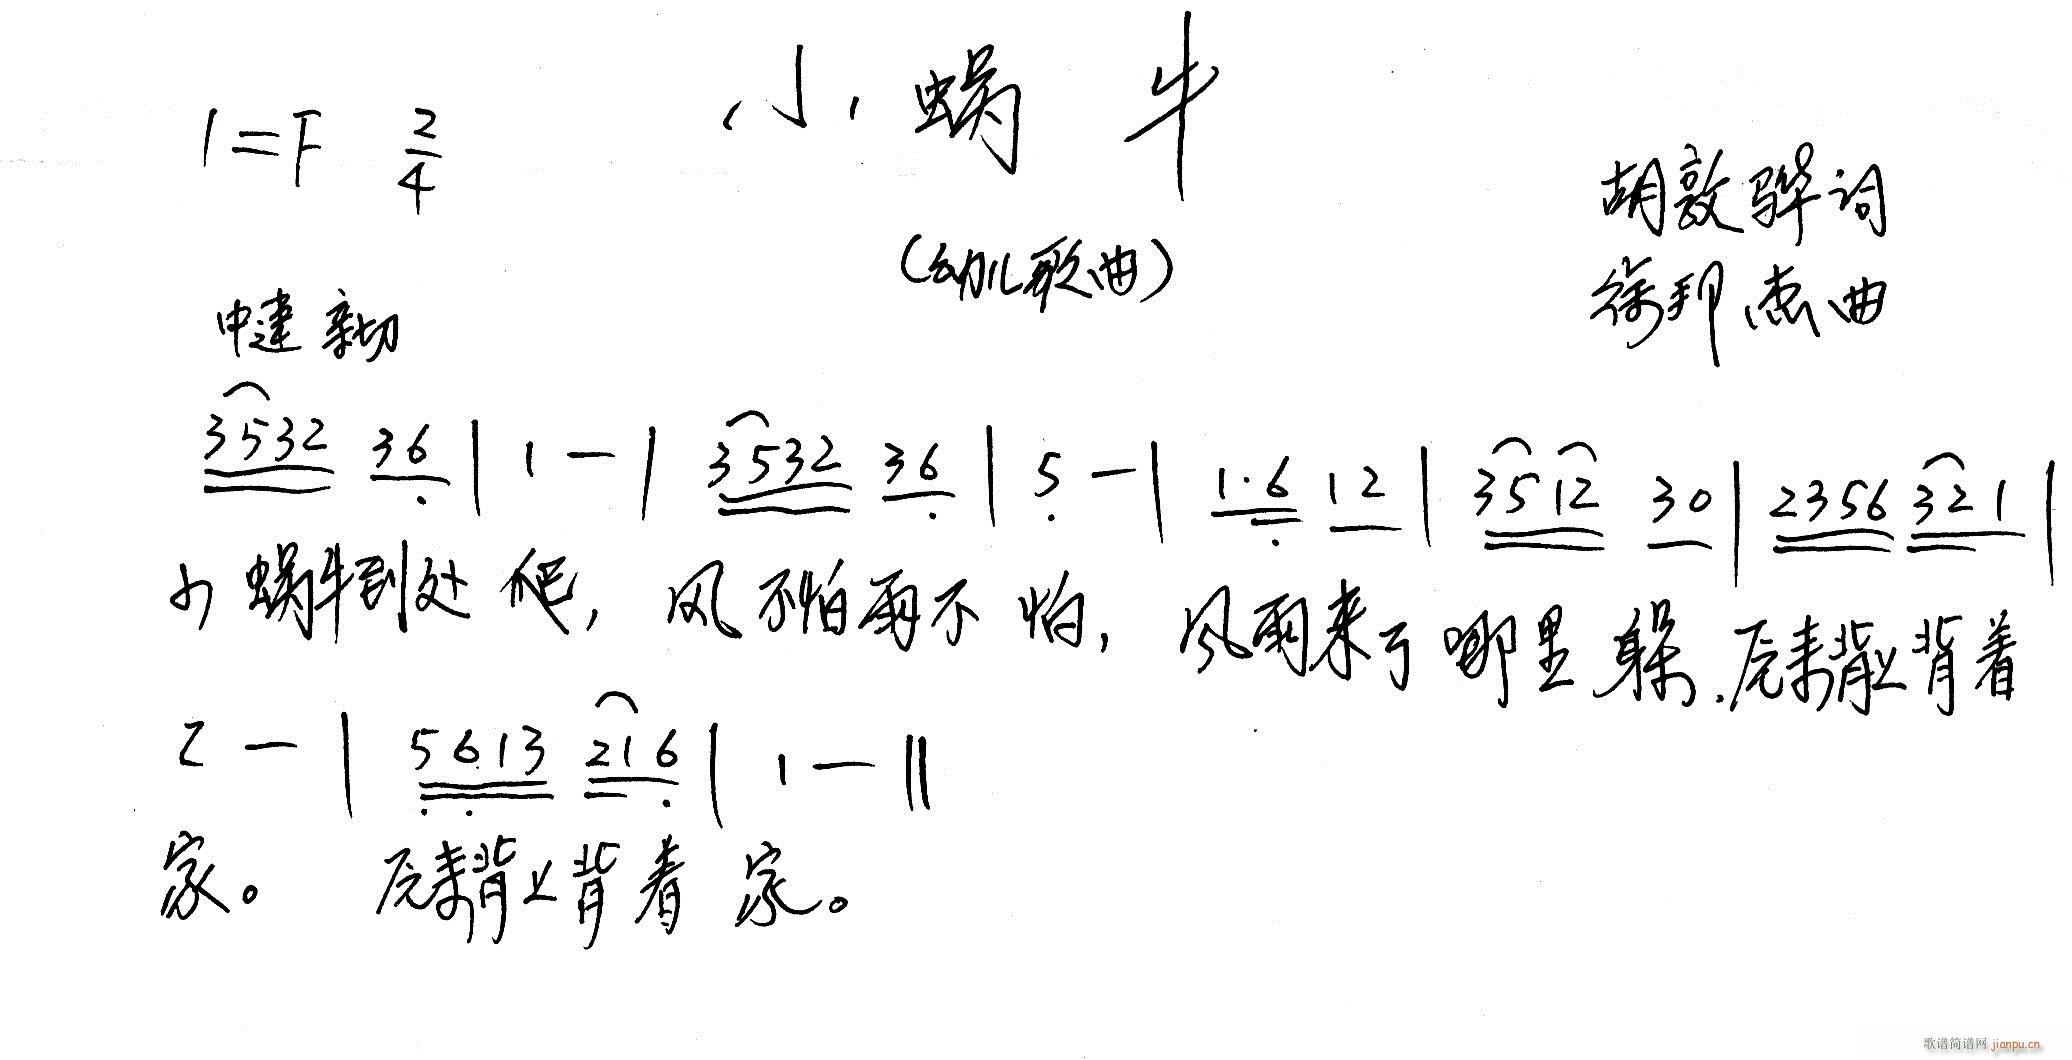 小蜗牛
1=F 2/4
(幼儿歌曲)
胡敦骅词
徐邦杰曲
中速 亲切
3532 36 | 1 — | 3532 36 | 5 — | 1·6 12 | 3512 30 | 2356 321 |
小蜗牛到处爬, 风不怕雨不怕, 风雨来了哪里躲.原来背上背着
2 — | 5613 216 | 1 — ‖
家。 原来背上背着家。
歌谱简谱网 jianpu.cn